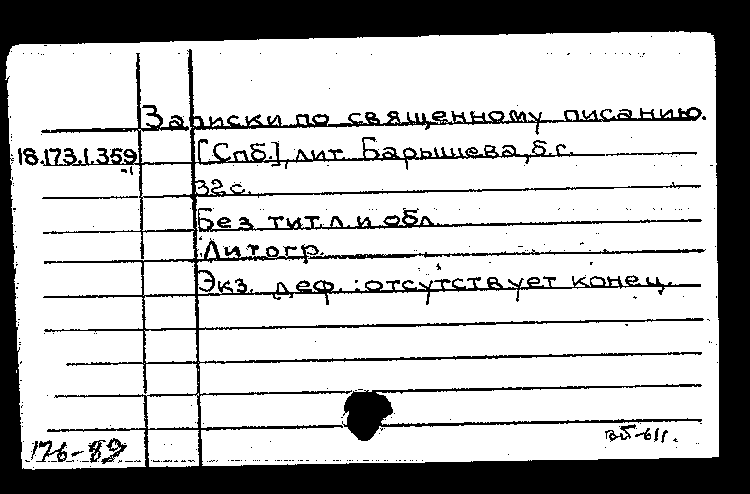 Записки по священному писанию.
18.173.1.359 [Спб.], лит. Барышева, б.г.
-1
32 с.
Без тит. л. и обл.
Литогр.
Экз. деф.: отсутствует конец.
176-89